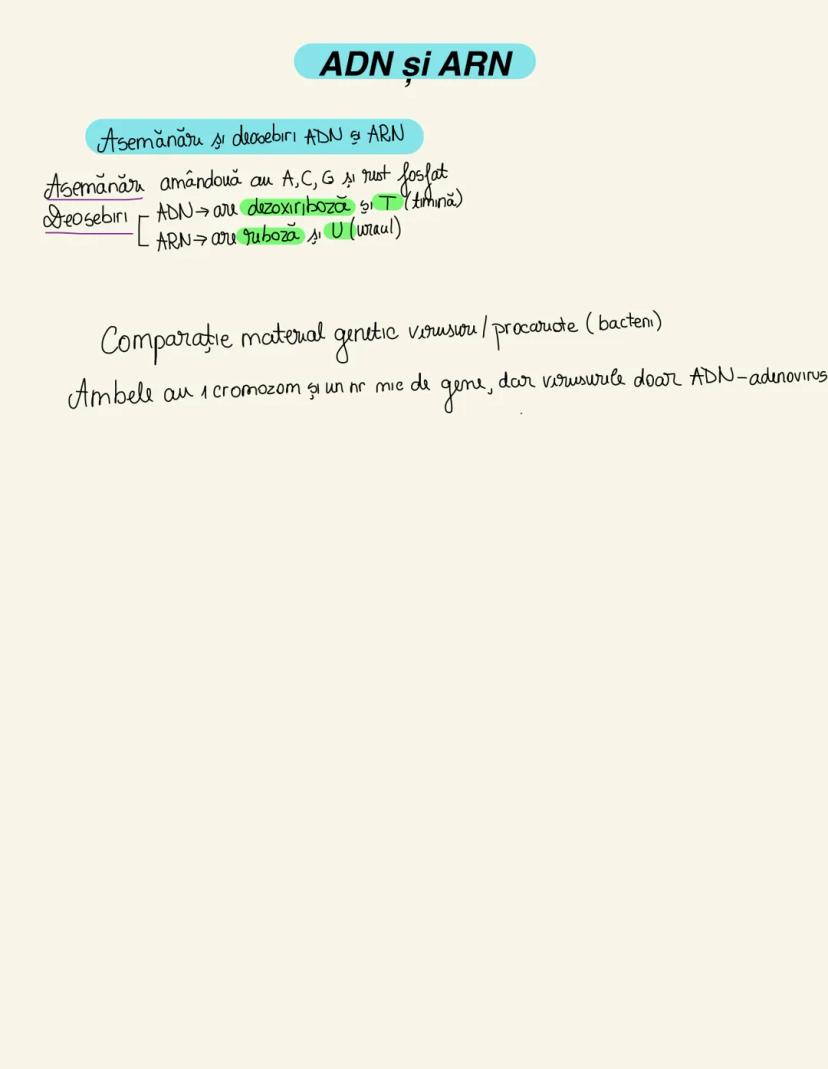 ADN și ARN
Asemănări și deosebiri ADN și ARN
Asemănări amândouă au A, C, G și rest fosfat
Deosebiri ADN → are dezoxiriboză și T (timină)
ARN → are riboză și U (uracil)
Comparație material genetic virusuri / procariote (bacterii)
Ambele au 1 cromozom și un nr mic de gene, dar virusurile doar ADN-adenovirus